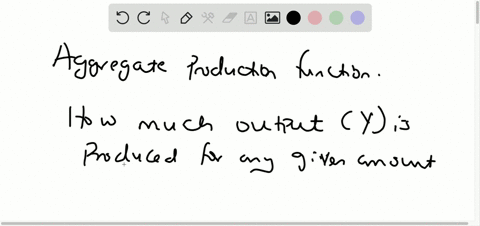 Aggregate Production function.
How much output (Y) is
Produced for any given amount